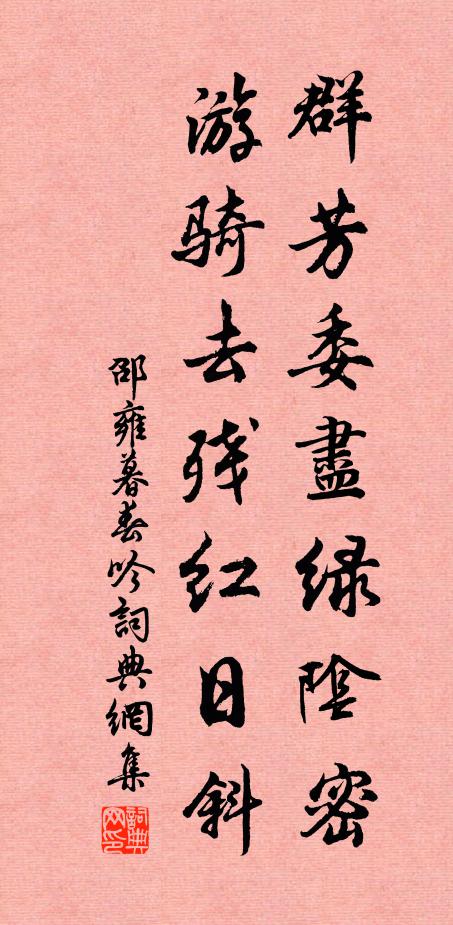 群芳委盡緑陰密
游骑去残红日斜
邵雍暮春吟詞典網集
詞典网印